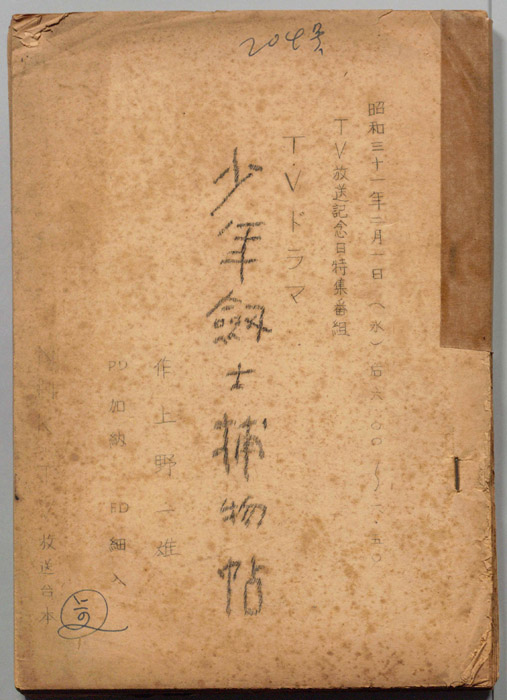 204号
昭和三十一年二月一日（水）后六、〇〇〜六、五〇
TV放送記念日特集番組
T・Vドラマ
少年劔士捕物帖
作 上野一雄
PD 加納 FD 細入
放送台本